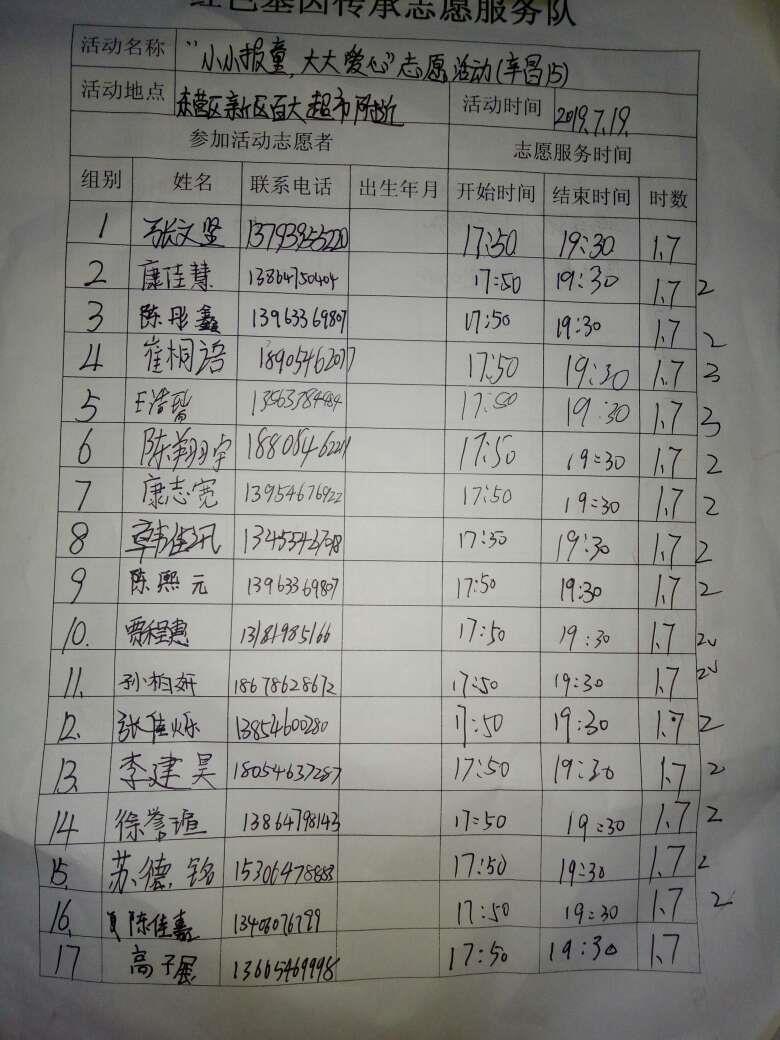 红色基因传承志愿服务队
活动名称 "小小报童,大大爱心"志愿活动(辛昌15)
活动地点 东营区新区百大超市附近 活动时间 2019.7.19.
参加活动志愿者 志愿服务时间
组别 姓名 联系电话 出生年月 开始时间 结束时间 时数
1 张文坚 13793955220 17:50 19:30 1.7
2 康佳慧 13864750404 17:50 19:30 1.7 2
3 陈彤鑫 13963369807 17:50 19:30 1.7 2
4 崔桐语 18905462077 17:50 19:30 1.7 3
5 17:50 19:30 1.7 3
6 陈翔宇 17:50 19:30 1.7 2
7 康志宽 13954676922 17:50 19:30 1.7 2
8 韩佳讯 17:50 19:30 1.7 2
9 陈熙元 13963369807 17:50 19:30 1.7 2
10. 贾程惠 13181985166 17:50 19:30 1.7 2
11. 孙柏妍 18678628672 17:50 19:30 1.7 2
12. 张佳烁 13854600280 17:50 19:30 1.7 2
13. 李建昊 18054637287 17:50 19:30 1.7 2
14 徐誉瑄 13864798143 17:50 19:30 1.7 2
15. 苏德铭 15306478883 17:50 19:30 1.7 2
16. 陈佳嘉 13408076799 17:50 19:30 1.7 2
17 高子展 13665469998 17:50 19:30 1.7